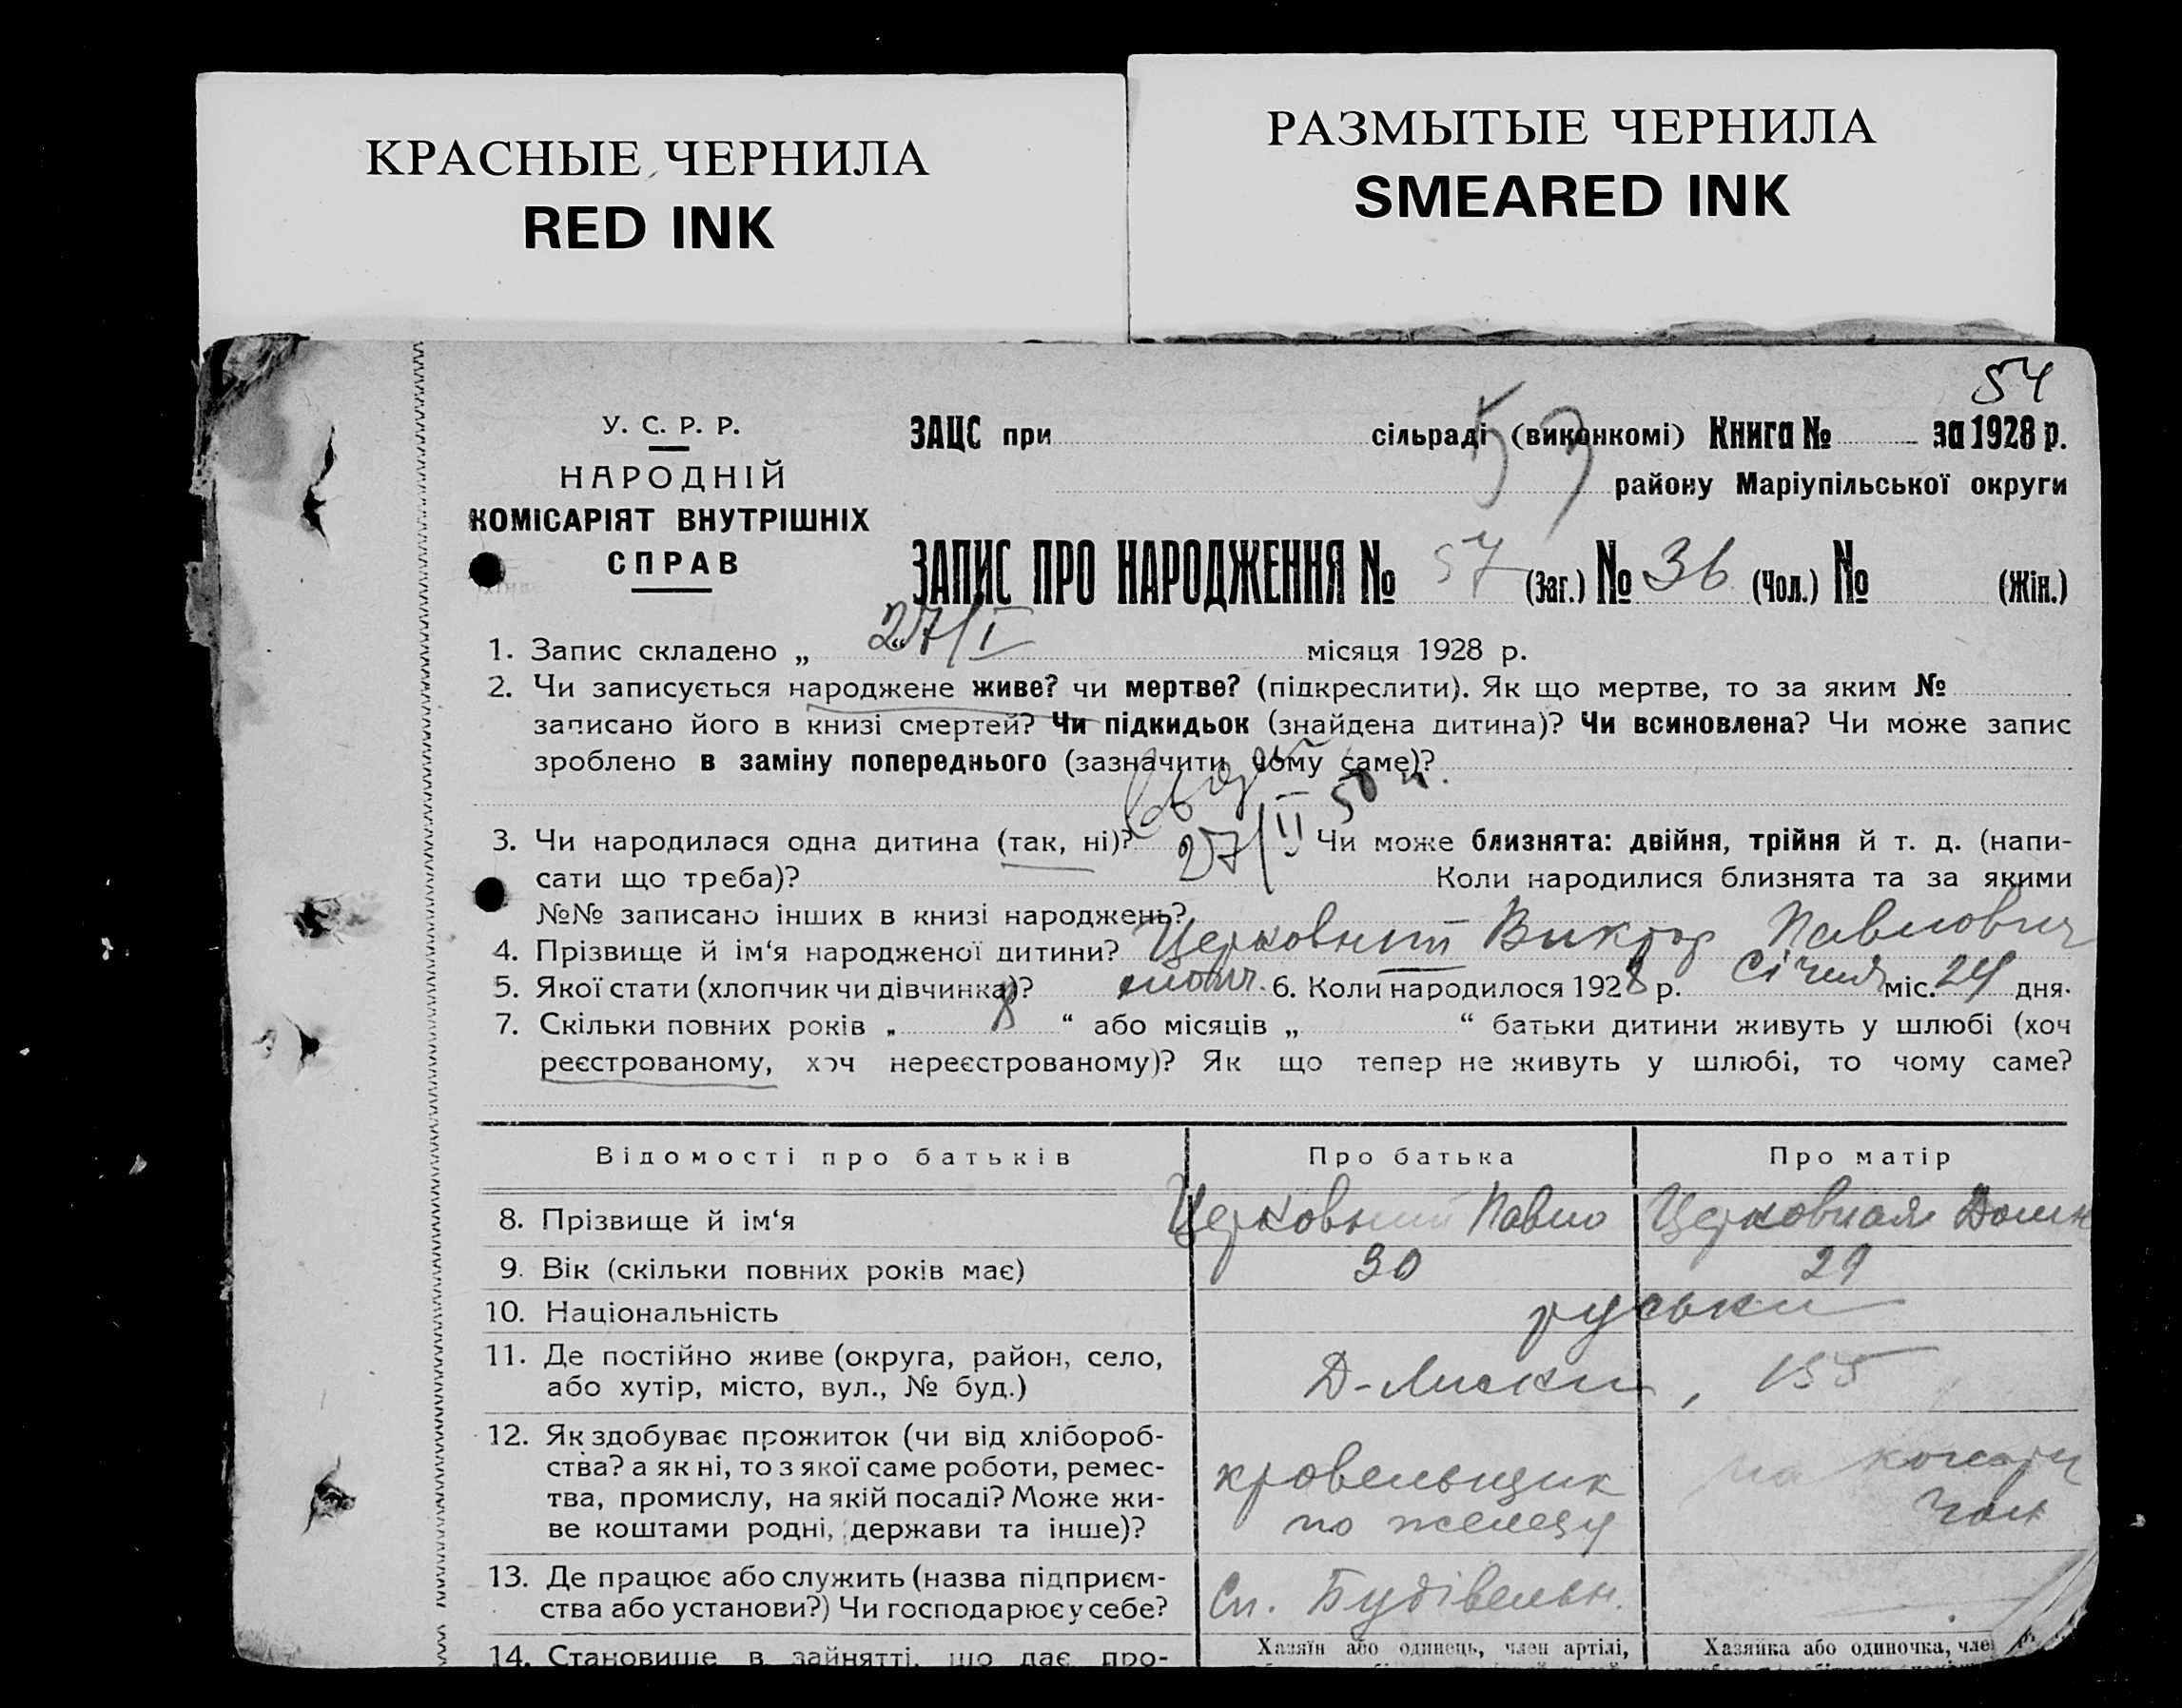 КРАСНЫЕ ЧЕРНИЛА
RED INK
РАЗМЫТЫЕ ЧЕРНИЛА
SMEARED INK
54
У. С. Р. Р.
НАРОДНІЙ
КОМІСАРІЯТ ВНУТРІШНІХ
СПРАВ
ЗАЦС при сільраді (виконкомі) Книга № за 1928 р.
57
району Маріупільської округи
ЗАПИС ПРО НАРОДЖЕННЯ № 57 (Заг.) № 36 (Чол.) № (Жін.)
1. Запис складено „ 27/I місяця 1928 р.
2. Чи записується народжене живе? чи мертве? (підкреслити). Як що мертве, то за яким №
записано його в книзі смертей? Чи підкидьок (знайдена дитина)? Чи всиновлена? Чи може запис
зроблено в заміну попереднього (зазначити чому саме)?
27/II 50 г.
3. Чи народилася одна дитина (так, ні)? Чи може близнята: двійня, трійня й т. д. (напи-
сати що треба)? Коли народилися близнята та за якими
№№ записано інших в книзі народжень?
4. Прізвище й ім‘я народженої дитини? Церковный Виктор Павлович
5. Якої стати (хлопчик чи дівчинка)? хлопч. 6. Коли народилося 1928 р. Січня міс. 24 дня.
7. Скільки повних років „ 8 “ або місяців „ “ батьки дитини живуть у шлюбі (хоч
реєстрованому, хоч нереєстрованому)? Як що тепер не живуть у шлюбі, то чому саме?
Відомості про батьків Про батька Про матір
8. Прізвище й ім‘я Церковний Павло Церковная
9. Вік (скільки повних років має) 30 29
10. Національність руськи
11. Де постійно живе (округа, район, село,
або хутір, місто, вул., № буд.) Д-Лиски, 155
12. Як здобуває прожиток (чи від хлібороб-
ства? а як ні, то з якої саме роботи, ремес-
тва, промислу, на якій посаді? Може жи-
ве коштами родні, держави та інше)?
кровельщик
по железу
на
13. Де працює або служить (назва підприєм-
ства або установи?) Чи господарює у себе?
Сп. Будівельн.
14. Становище в зайнятті, що дає про-
Хазяїн або одинець, член артілі,
Хазяйка або одиночка, член